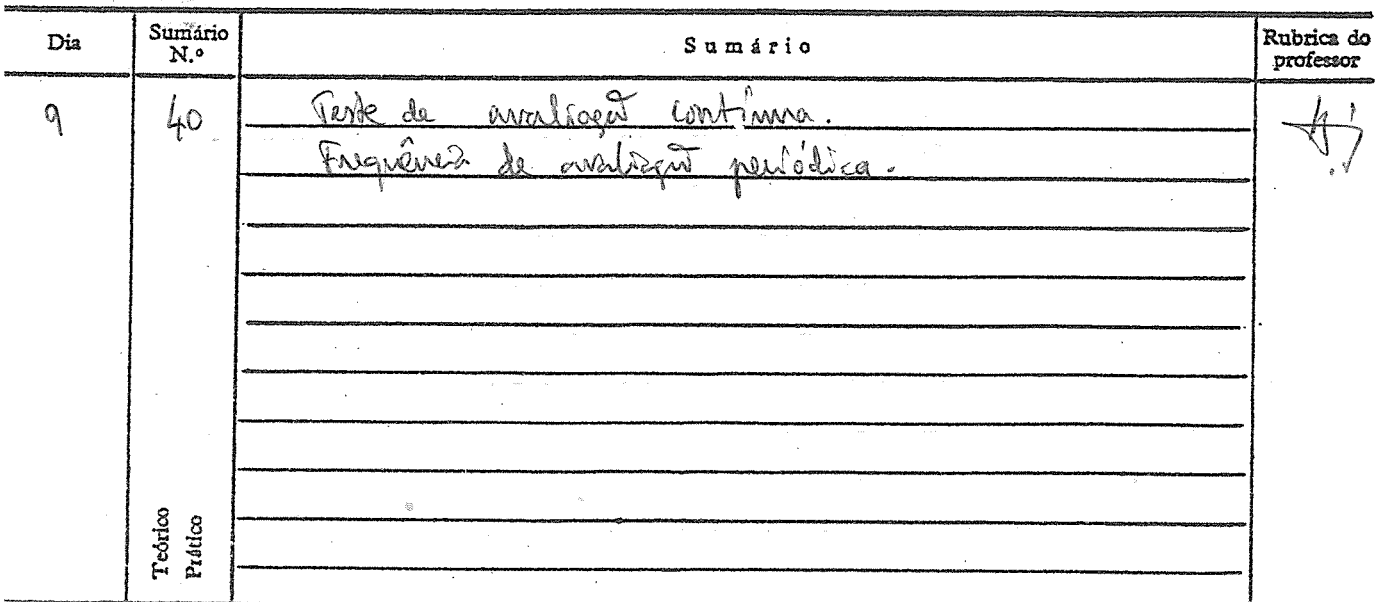 Dia
Sumário N.º
Sumário
Rubrica do professor
9
40
Teste de avaliação contínua.
Frequência de avaliação periódica.
Teórico
Prático